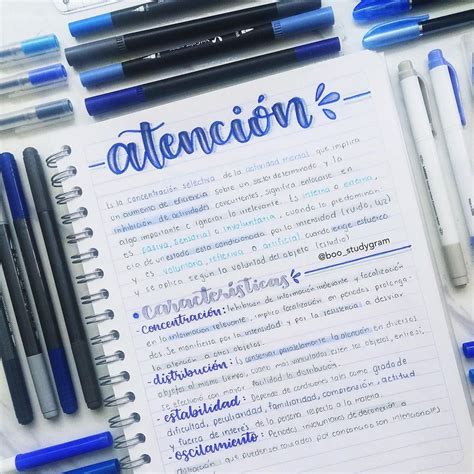 atención
Es la concentración selectiva de la actividad mental que implica
un aumento de eficiencia sobre un sector determinado y la
inhibición de actividades concurrentes, significa enfocarse en
algo importante e ignorar lo irrelevante. Es interna o externa,
es pasiva, sensorial o involuntaria, cuando lo predominan
es un estado esta condicionada por la intensidad (ruido, luz)
y es voluntaria, reflexiva o artificial cuando exige esfuerzo
y se aplica según la voluntad del objeto (estudio)
@boo_studygram
características
-concentración: Inhibición de información irrelevante y focalización
en la información relevante, implica focalización en periodos prolonga-
dos. Se manifiesta por la intensidad y por la resistencia a desviar
la atención a otros objetos.
-distribución: Es conservar paralelamente la atención en diversos
objetos al mismo tiempo, cuanto más vinculados estén los objetos,
se efectuará con mayor facilidad la distribución.
-estabilidad: Depende de condiciones tales como grado de
dificultad, peculiaridad, familiaridad, comprensión, actitud
y fuerza de interés de la persona respecto a la materia.
-oscilamiento: Periodos involuntarios de
que pueden ser causados por